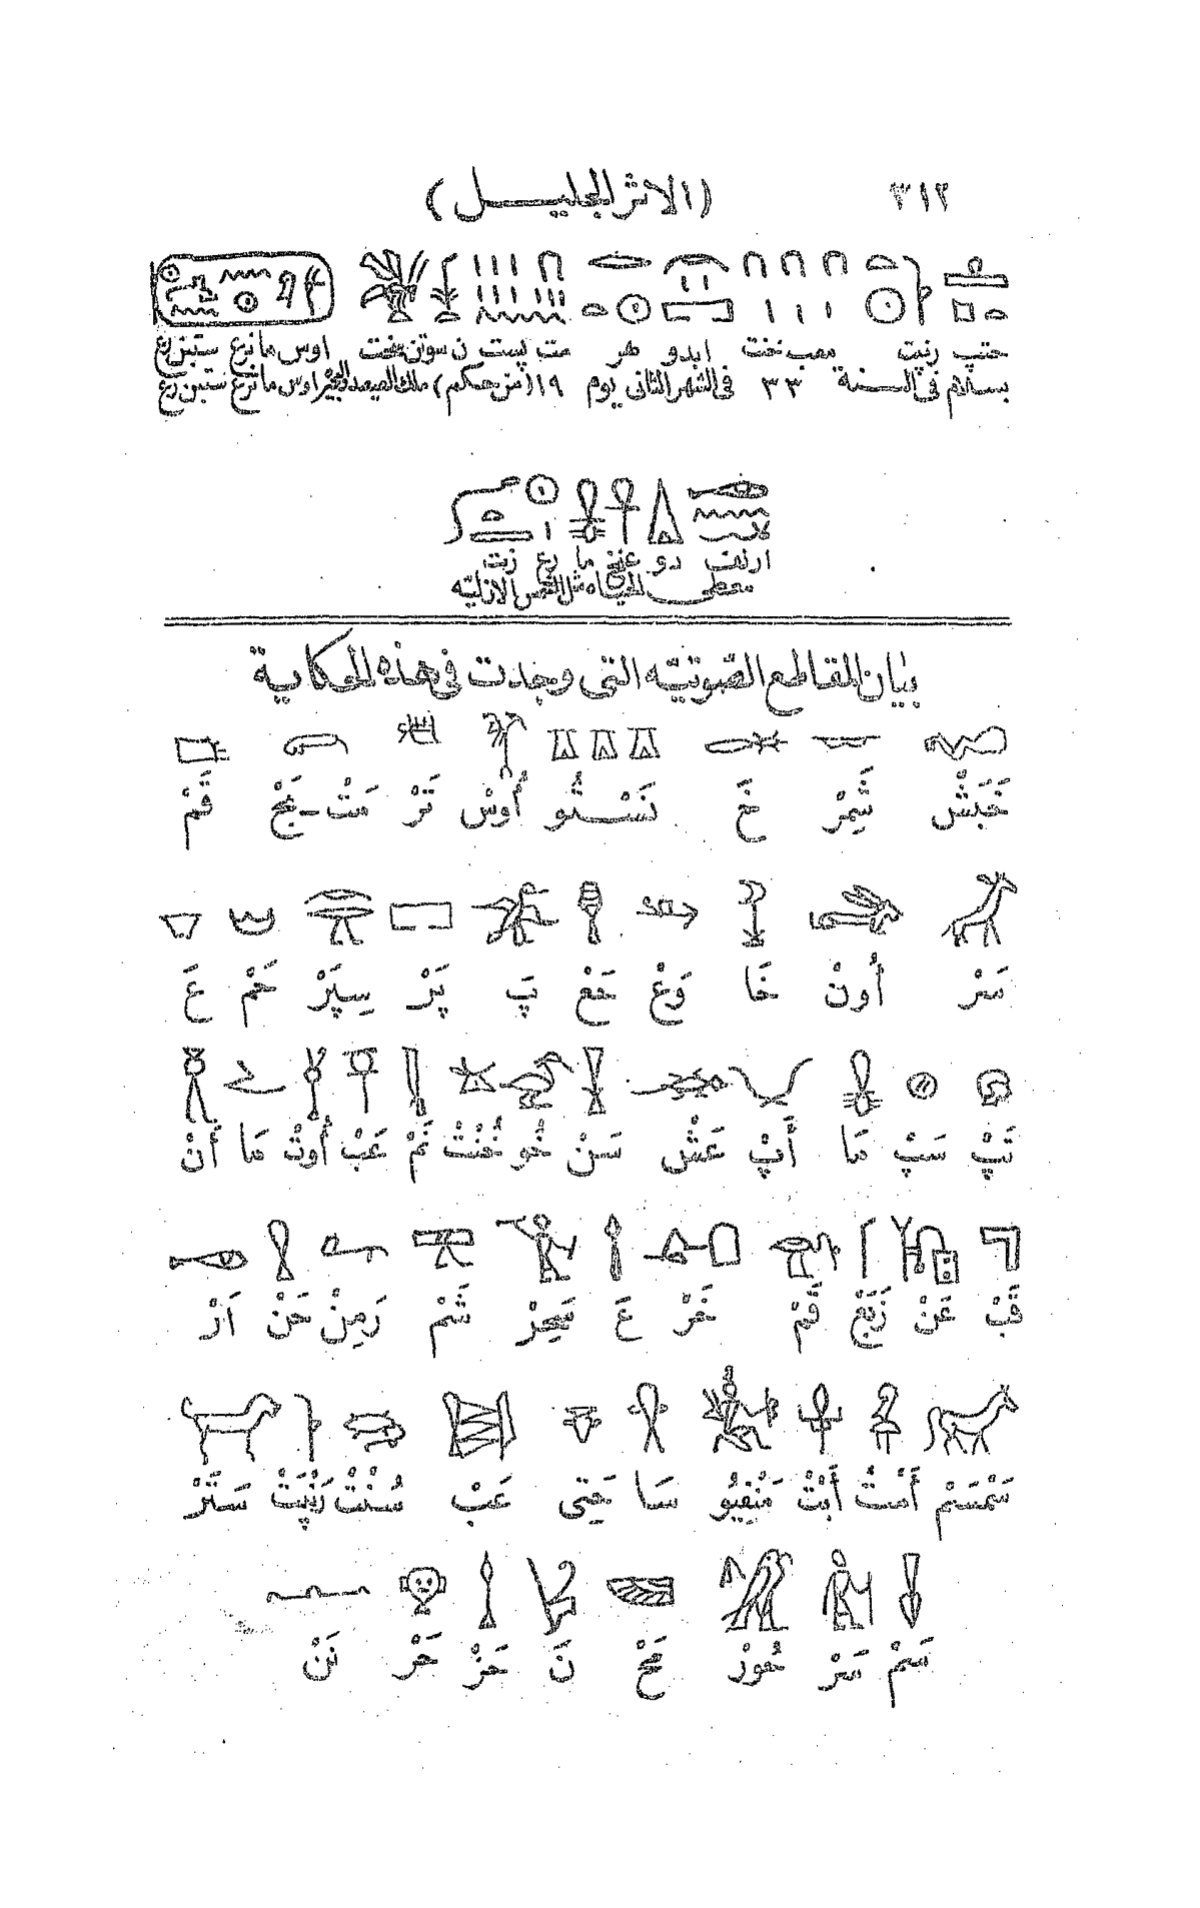 ٣١٢ (الاثر الجليل)
حتب رنپت معب خمت ابدو هر مت پست ن سوتن سخت اوس ما نرع ستبن رع
بسلام فى السنة ٣٣ فى الشهر الثانى يوم ١٩ (من حكم) ملك الصعيد والبحيره اوس ما نرع ستبن رع
ارنف دو عنخ ما رع زت
معطى الحياه مثل الشمس الازليه
بيان المقاطع الصوتيه التى وجدت فى هذه الحكاية
خَبَشْ شِمْرْ خَ نَسْتُو أُوسْ تَرْ مَتْ-بَحْ قَمْ
سَرْ أُونْ خَا وَعْ حَعْ پَ پَرْ سِپَرْ حَمْ عَ
تَپْ سَپْ مَا أَپْ عَشْ سَنْ خُو خُنْتْ نَمْ عَبْ أُوتْ مَا أَنْ
قَبْ عَنْ زَبَعْ قَمْ خَرْ عَ سَمِحِرْ شَمْ رَمِنْ حَنْ اَرْ
سَمْسَمْ أَمْتْ أَبْتْ مَنْفِيُو سَا حَتِى عَبْ سُنْتْ رَنْپَتْ سَتَرْ
سَمْ سَرْ حُورْ مَحْ نَ حَزْ حَرْ نَنْ